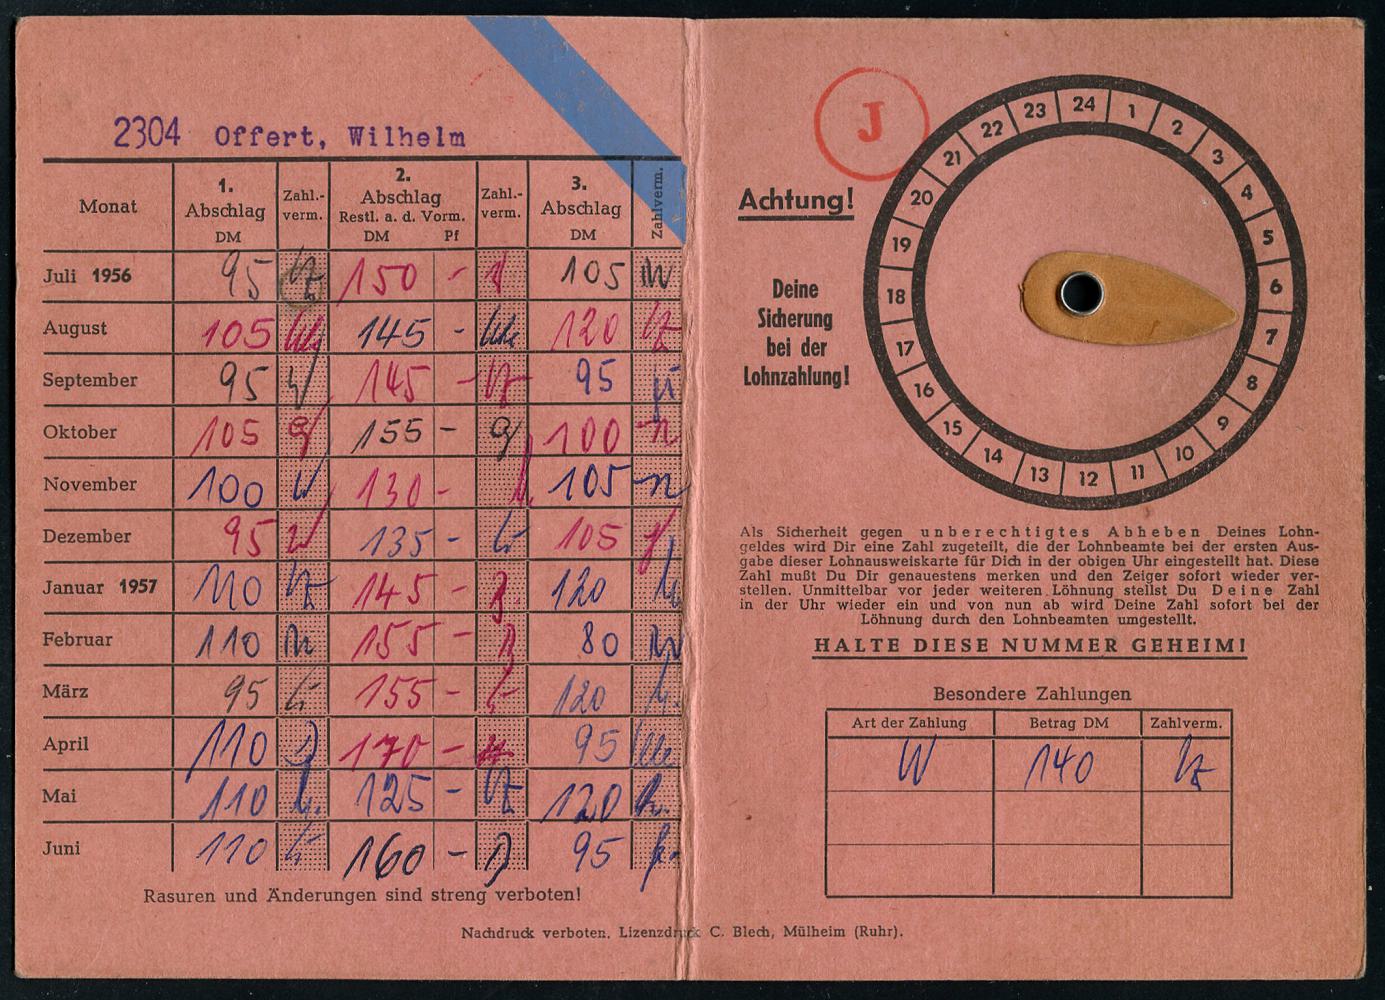 2304 Offert, Wilhelm
Monat 1. Abschlag DM Zahl.-verm. 2. Abschlag Restl. a. d. Vorm. DM Pf Zahl.-verm. 3. Abschlag DM Zahlverm.
Juli 1956 95 150 - 105
August 105 145 - 120
September 95 145 - 95
Oktober 105 155 - 100
November 100 130 - 105
Dezember 95 135 - 105
Januar 1957 110 145 - 120
Februar 110 155 - 80
März 95 155 - 120
April 110 170 - 95
Mai 110 125 - 120
Juni 110 160 - 95
Rasuren und Änderungen sind streng verboten!
J
Achtung!
Deine
Sicherung
bei der
Lohnzahlung!
1 2 3 4 5 6 7 8 9 10 11 12 13 14 15 16 17 18 19 20 21 22 23 24
Als Sicherheit gegen unberechtigtes Abheben Deines Lohn-
geldes wird Dir eine Zahl zugeteilt, die der Lohnbeamte bei der ersten Aus-
gabe dieser Lohnausweiskarte für Dich in der obigen Uhr eingestellt hat. Diese
Zahl mußt Du Dir genauestens merken und den Zeiger sofort wieder ver-
stellen. Unmittelbar vor jeder weiteren Löhnung stellst Du Deine Zahl
in der Uhr wieder ein und von nun ab wird Deine Zahl sofort bei der
Löhnung durch den Lohnbeamten umgestellt.
HALTE DIESE NUMMER GEHEIM!
Besondere Zahlungen
Art der Zahlung Betrag DM Zahlverm.
W 140
Nachdruck verboten. Lizenzdruck C. Blech, Mülheim (Ruhr).